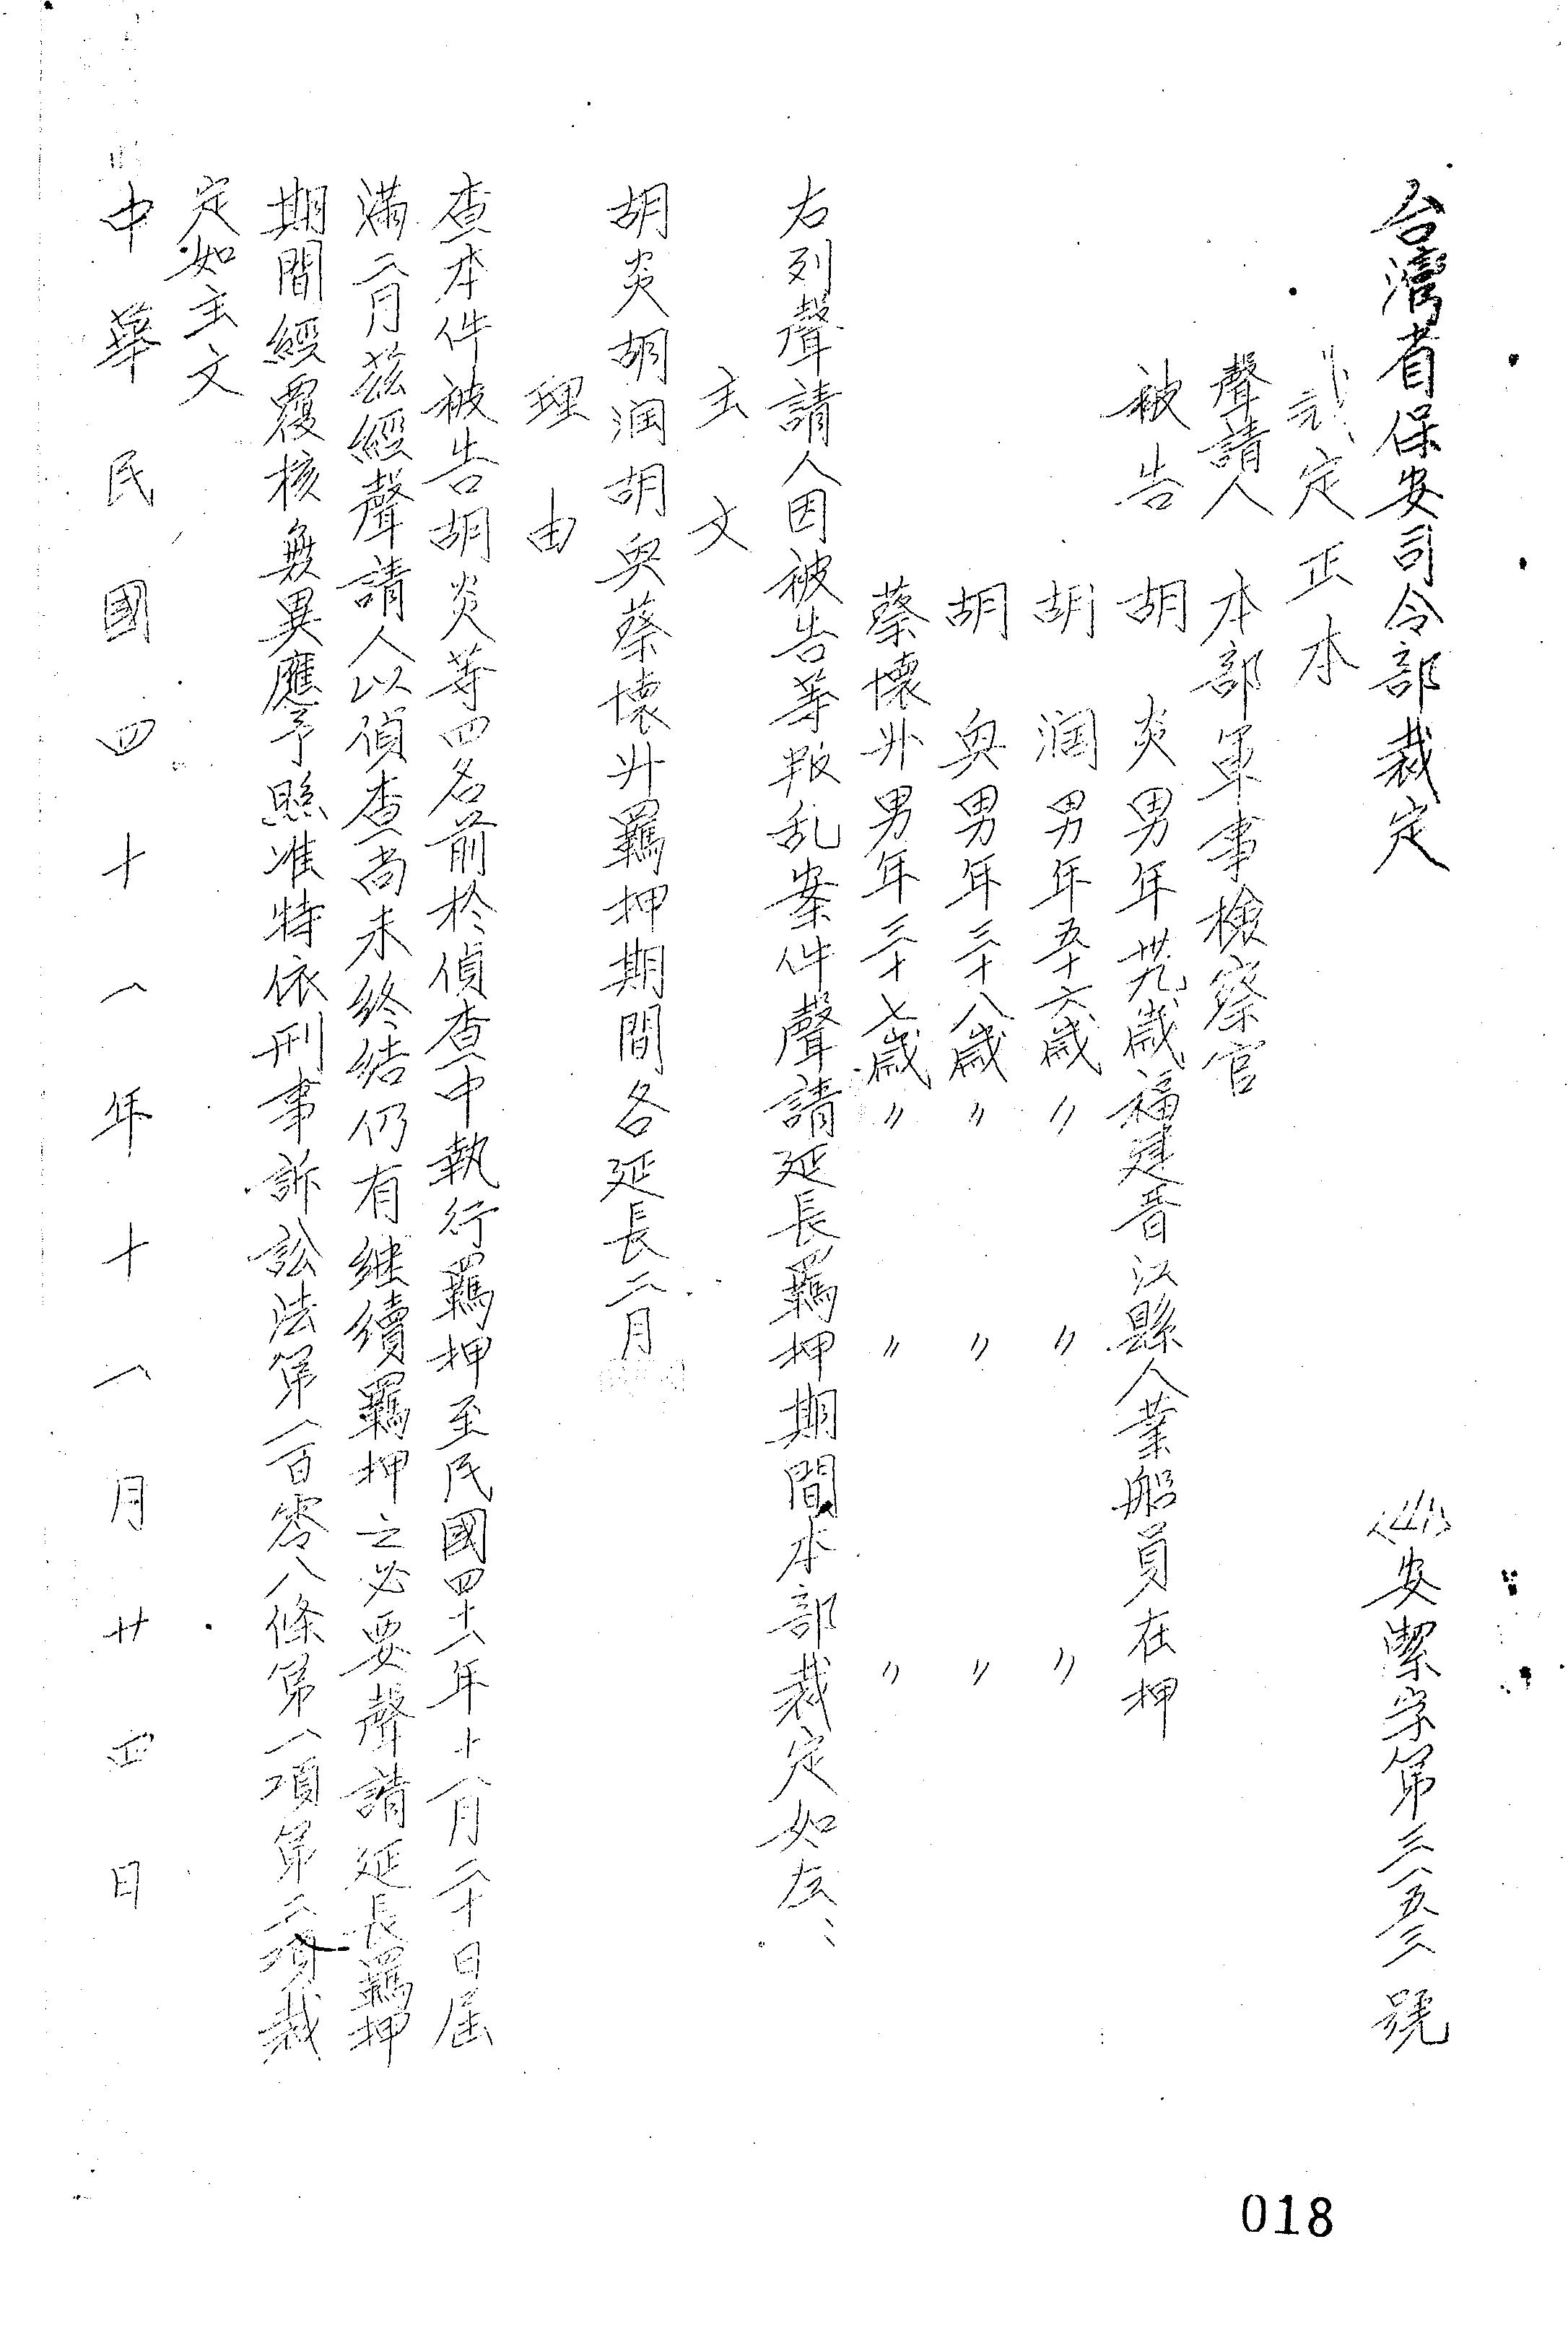 台灣省保安司令部裁定
(41)安潔字第三一五三號
裁定正本
聲請人　本部軍事檢察官
被告　胡　炎男年卅九歲福建晋江縣人業船員在押
胡　润男年五十六歲〃　〃　〃
胡　奥男年三十八歲〃　〃　〃
蔡懐升男年三十七歲〃　〃　〃
右列聲請人因被告等叛乱案件聲請延長羈押期間本部裁定如左：
主　文
胡炎胡润胡奥蔡懐升羈押期間各延長二月
理　由
查本件被告胡炎等四名前於偵查中執行羈押至民國四十一年十一月二十日届
滿二月茲經聲請人以偵查尚未終結仍有継續羈押之必要聲請延長羈押
期間經覆核無異應予照准特依刑事訴訟法第一百零八條第一項第二項裁
定如主文
中華民國四十一年十一月廿四日
018